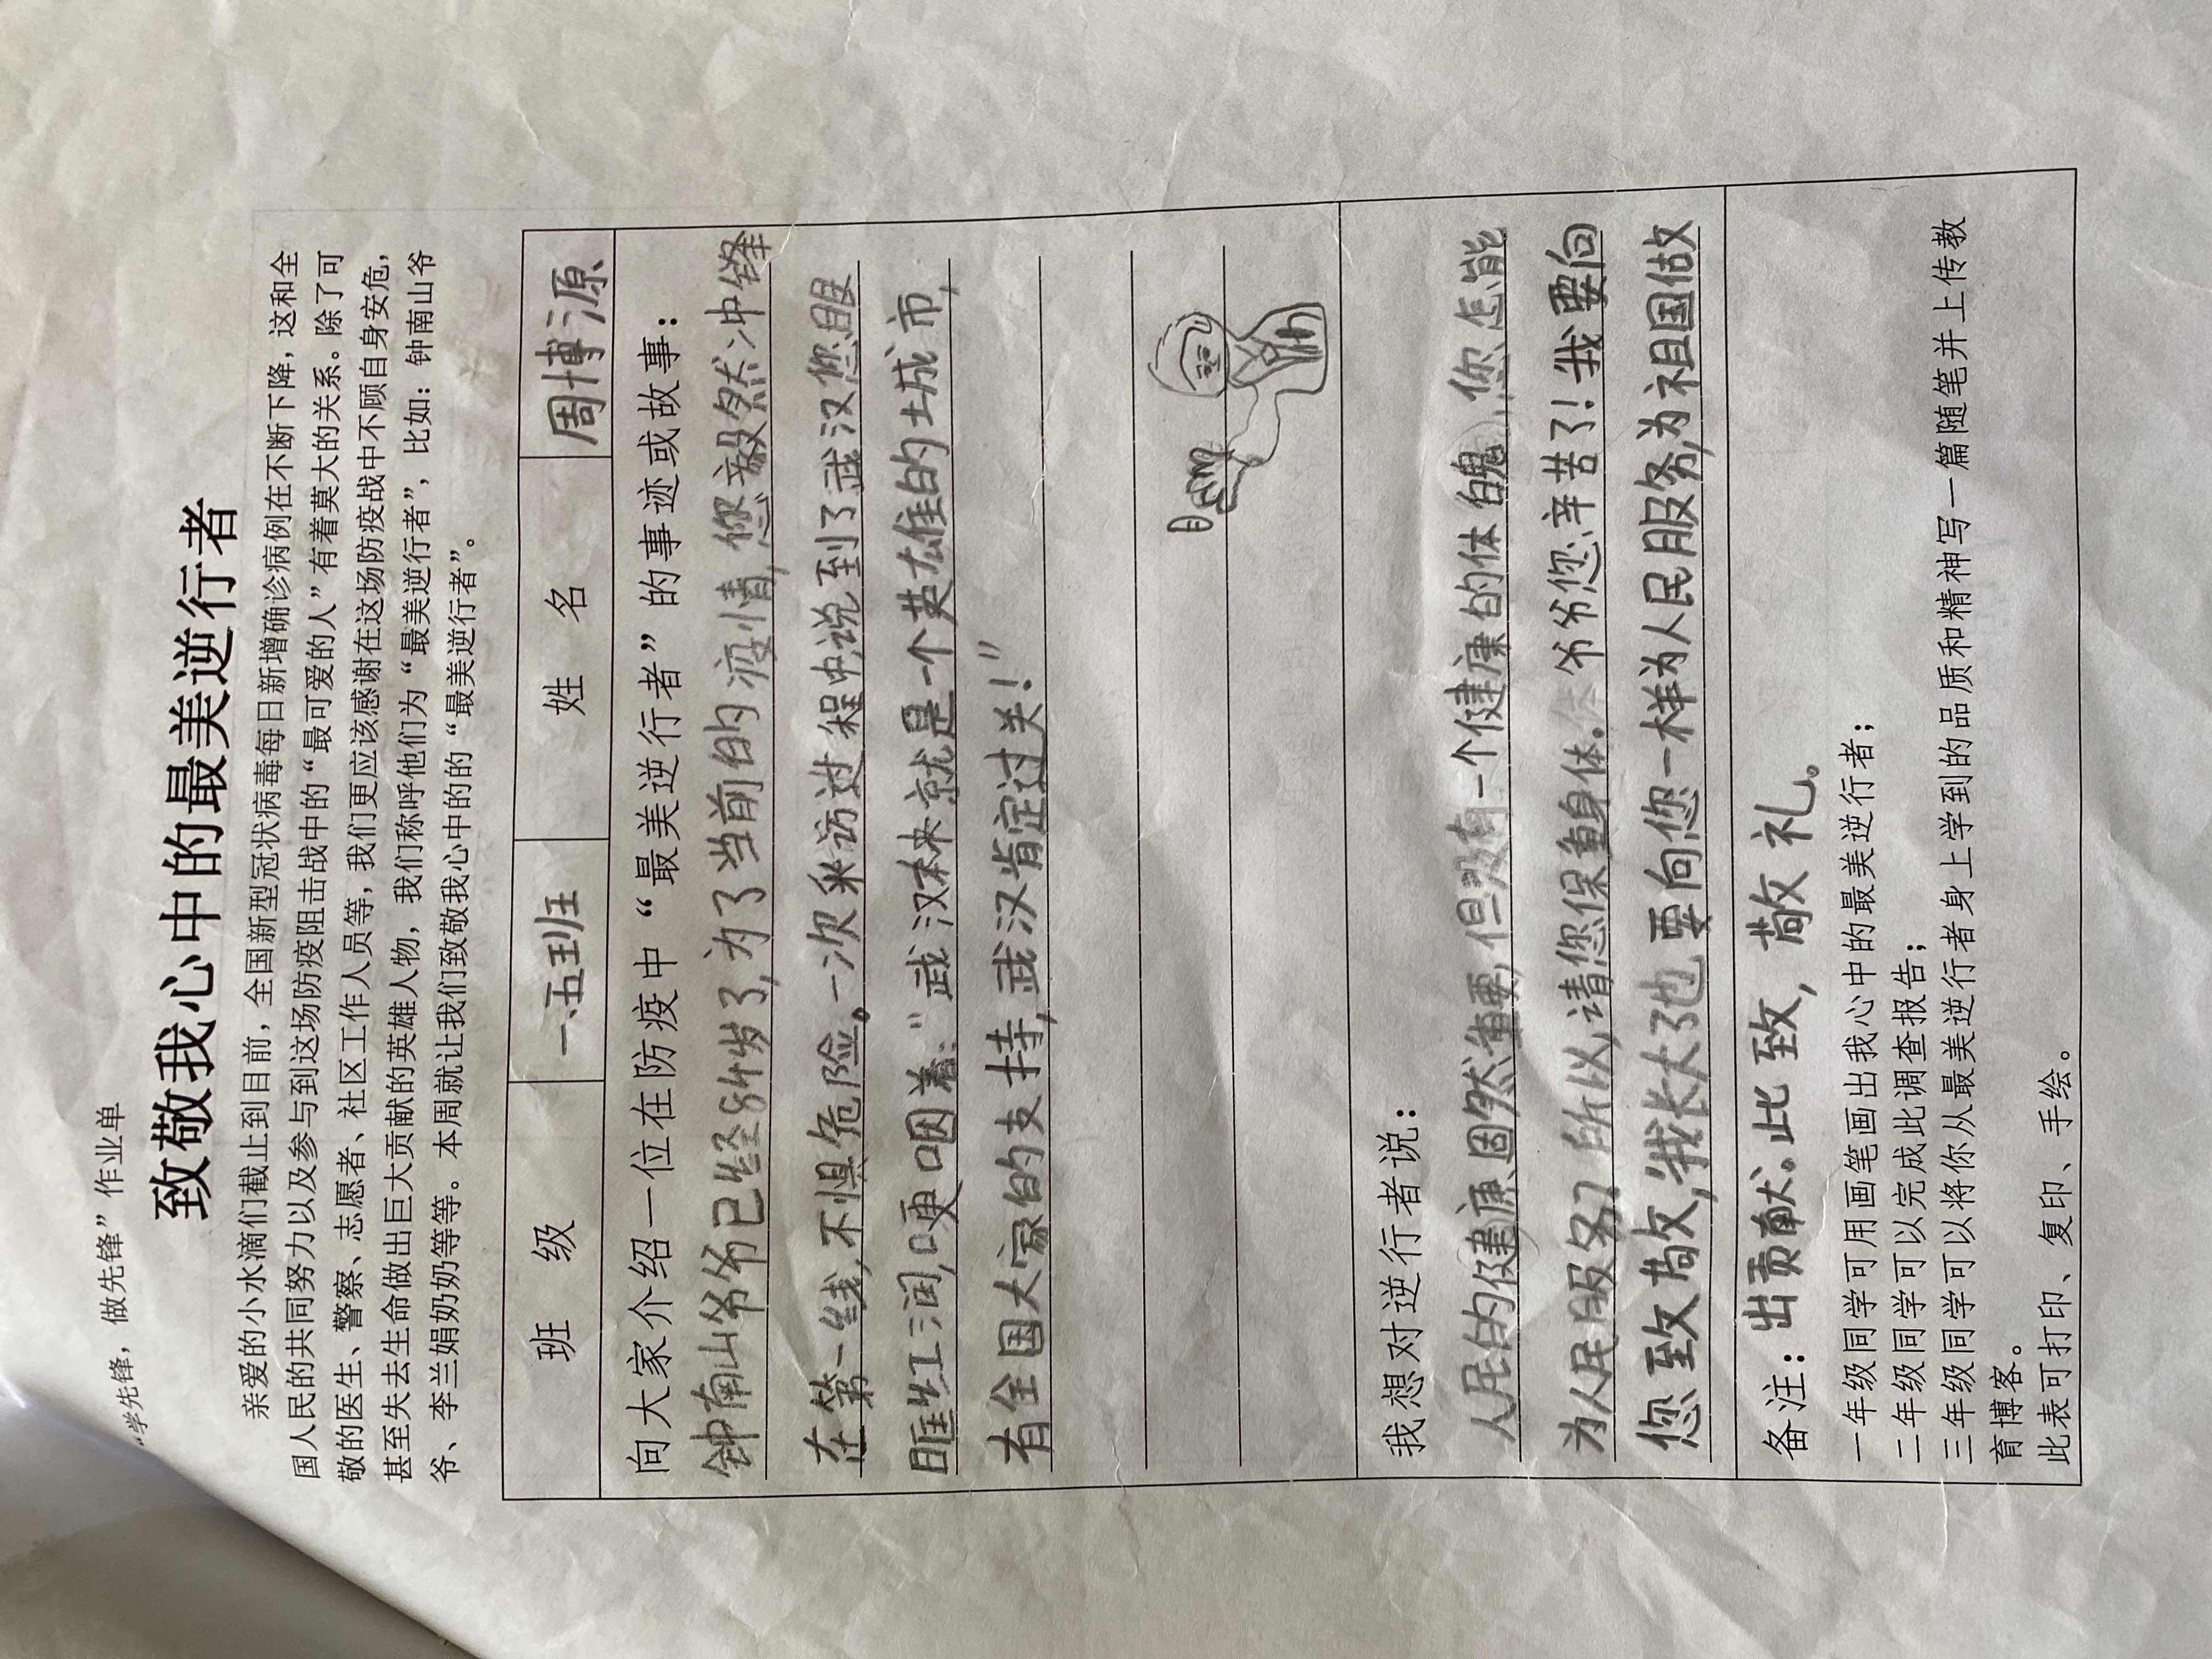 “学先锋，做先锋”作业单
致敬我心中的最美逆行者
亲爱的小水滴们截止到目前，全国新型冠状病毒每日新增确诊病例在不断下降，这和全
国人民的共同努力以及参与到这场防疫阻击战中的“最可爱的人”有着莫大的关系。除了可
敬的医生、警察、志愿者、社区工作人员等，我们更应该感谢在这场防疫战中不顾自身安危，
甚至失去生命做出巨大贡献的英雄人物，我们称呼他们为“最美逆行者”，比如：钟南山爷
爷、李兰娟奶奶等等。本周就让我们致敬我心中的的“最美逆行者”。
班 级 一.五班 姓 名 周博源
向大家介绍一位在防疫中“最美逆行者”的事迹或故事：
钟南山爷爷已经84岁了,为了当前的疫情,您毅然冲锋
在第一线,不惧危险。一次采访过程中说到了武汉您眼
眶红润,哽咽着:“武汉本来就是一个英雄的城市,
有全国大家的支持,武汉肯定过关!”
我想对逆行者说：
人民的健康固然重要,但没有一个健康的体魄,您怎能
为人民服务?所以,请您保重身体。爷爷您辛苦了!我要向
您致敬,我长大了也要向您一样为人民服务,为祖国做
备注：出贡献。此致,敬礼。
一年级同学可用画笔画出我心中的最美逆行者；
二年级同学可以完成此调查报告；
三年级同学可以将你从最美逆行者身上学到的品质和精神写一篇随笔并上传教
育博客。
此表可打印、复印、手绘。